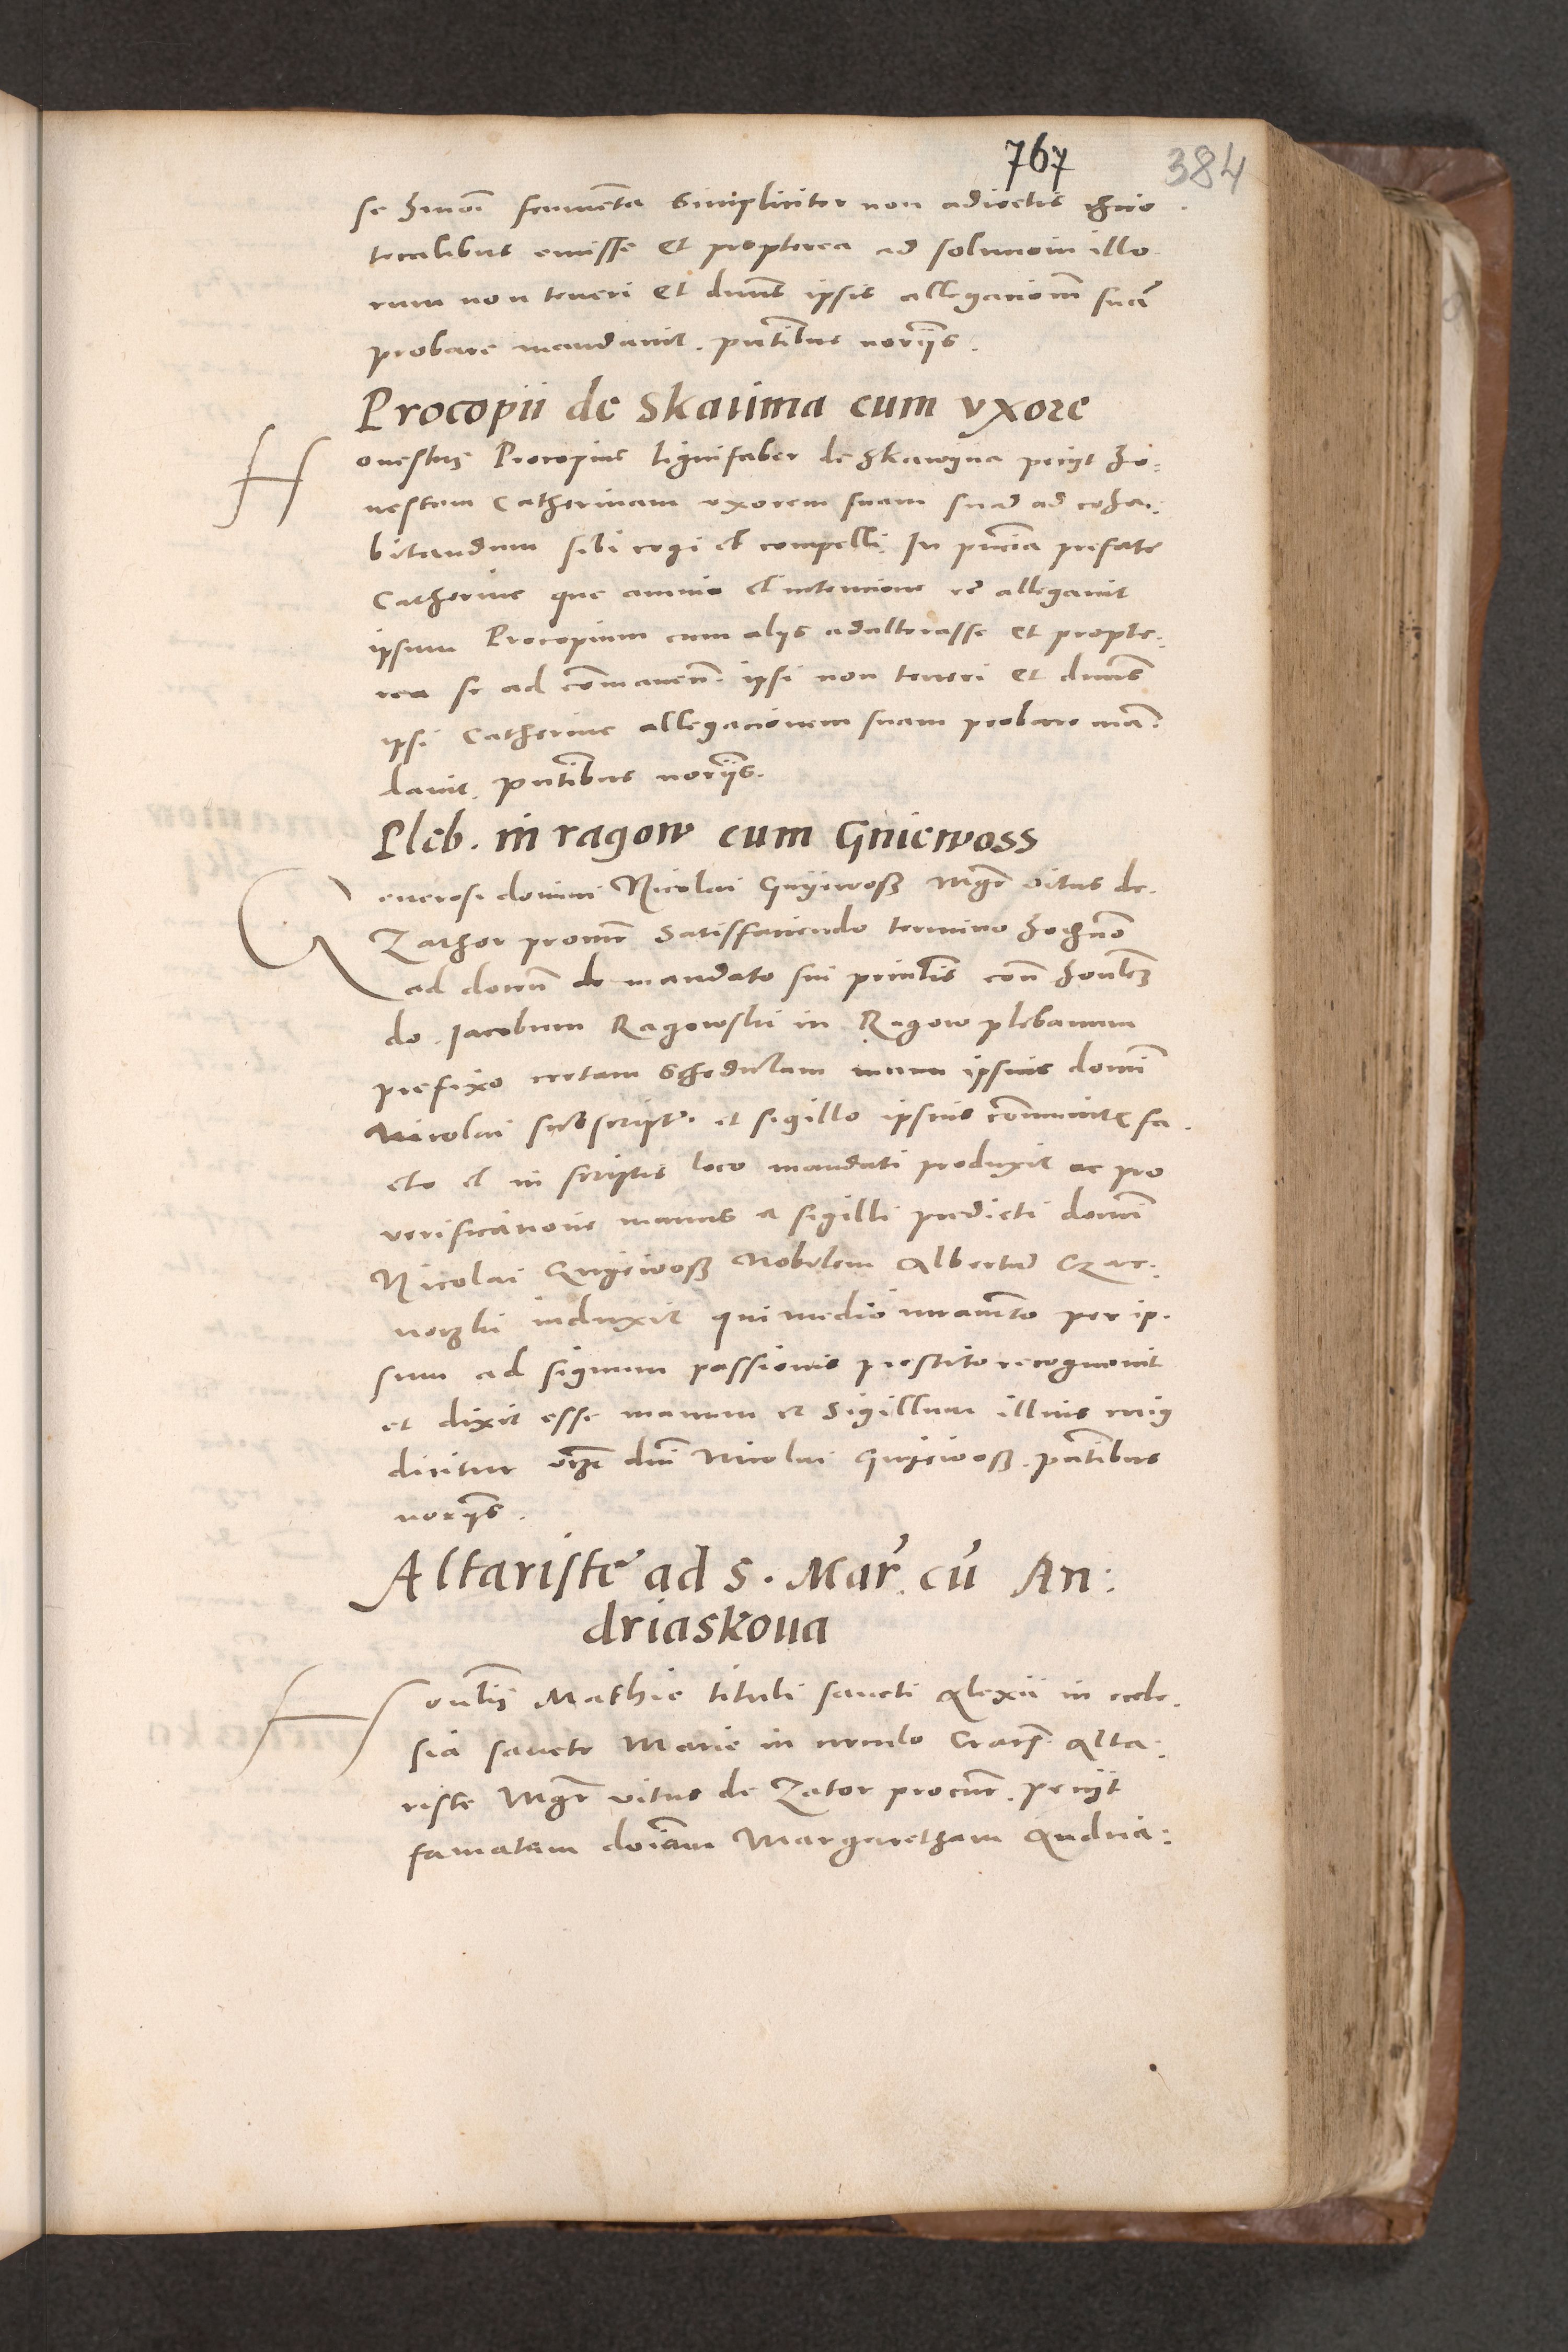 767
384
se hmoi frumenta Simpliciter non adiectis
tecalibus emisse et propterea ad solucioim illo
rum non teneri et dnus ipsis allegacionem sua
probare mandauit. pntibus norijs.
Procopii de Skauina cum vxore
Honestus Procopius lignifaber de Skawyna petijt ho:
nestam Catherinam vxorem suam ad coha:
bitandum sibi cogi et compelli. In pncia prefate
Catherine que animo et intencione allegauit
ipsum Procopium cum alijs adulterasse et propte:
rea se ad ipsi non teneri et dnus
ipsi Catherine allegacionem suam probare man:
dauit. pntibus norijs.
Pleb. in ragow cum Gniewoss
Generosi domini Nicolai Gnyewoß Mgr vitus de
Zathor procur Satisfaciendo termino hodierno
ad docen de mandato sui principalis con honlem
do. Jacobum Ragowski in Ragow plebanum
prefixo certam Schedulam manu ipsius domi
Nicolai subscript. et sigillo ipsius communitam fa.
cto et in scriptis loco mandati produxit ac pro
verificacione manus et sigilli predicti domi
Nicolai Gnyewoß Nobilem Albertum Czar:
noczki induxit qui medio iuramento per ip.
sum ad signum passionis prestito recognouit
et dixit esse manum et Sigillum illius cuius
dicitur dni Nicolai Gnyewoß. pntibus
norijs.
Altariste ad S. Mar. cu An:
driaskoua
Honlis Mathie tituli sancti Alexii in eccle.
sia sancte Marie in circulo Crac. Alta:
riste Mgr vitus de Zator procur. petijt
famatam doiam Margaretham Andria: